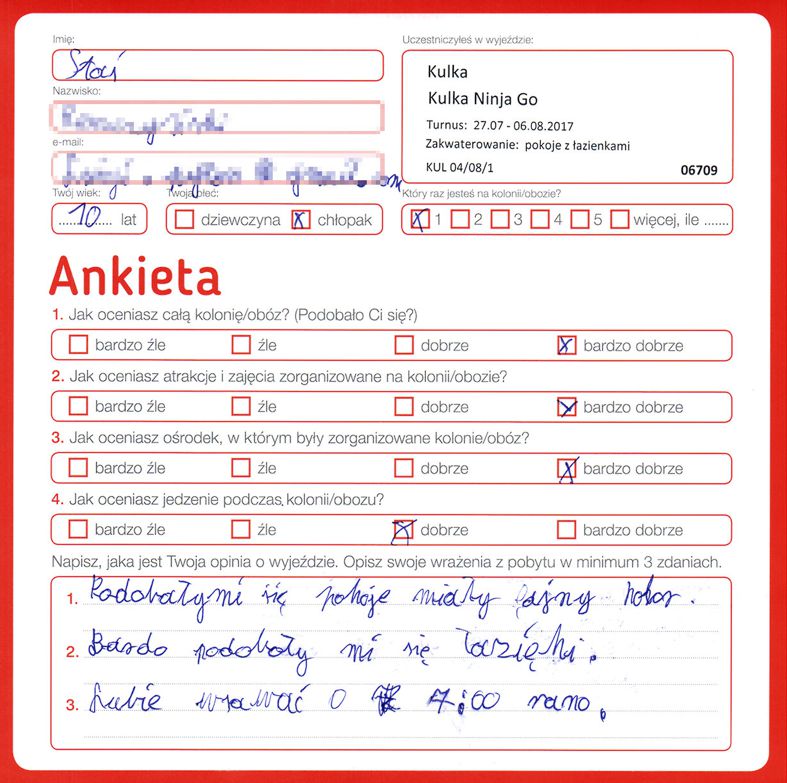 Imię:
Staś
Nazwisko:
e-mail:
Twój wiek:
10 lat
Twoja płeć:
dziewczyna chłopak
Uczestniczyłeś w wyjeździe:
Kulka
Kulka Ninja Go
Turnus: 27.07 - 06.08.2017
Zakwaterowanie: pokoje z łazienkami
KUL 04/08/1 06709
Który raz jesteś na kolonii/obozie?
1 2 3 4 5 więcej, ile .......
Ankieta
1. Jak oceniasz całą kolonię/obóz? (Podobało Ci się?)
bardzo źle źle dobrze bardzo dobrze
2. Jak oceniasz atrakcje i zajęcia zorganizowane na kolonii/obozie?
bardzo źle źle dobrze bardzo dobrze
3. Jak oceniasz ośrodek, w którym były zorganizowane kolonie/obóz?
bardzo źle źle dobrze bardzo dobrze
4. Jak oceniasz jedzenie podczas kolonii/obozu?
bardzo źle źle dobrze bardzo dobrze
Napisz, jaka jest Twoja opinia o wyjeździe. Opisz swoje wrażenia z pobytu w minimum 3 zdaniach.
1. Podobałymi się pokoje miały fajny kolor.
2. Bardo podobały mi się łazięki.
3. Lubie wsawać o 7:00 rano.